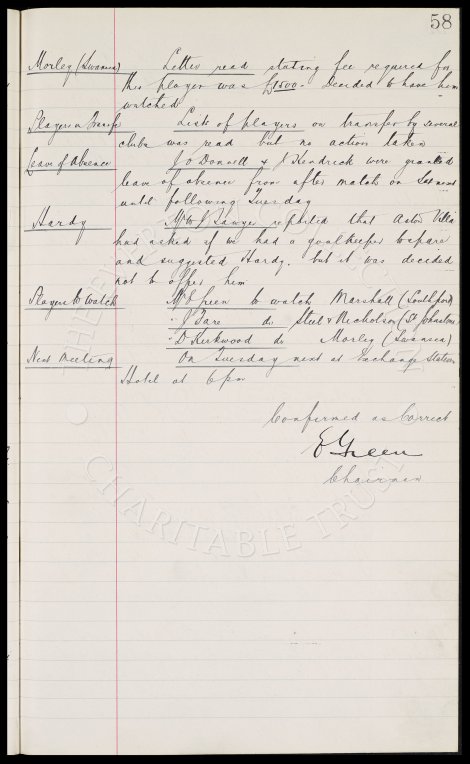 58
Morley (Swansea) Letter read stating fee required for
this player was £1500. Decided to have him
watched
Players on Transfer Lists of players on transfer by several
clubs was read but no action taken
Leave of Absence J O Donnell & J Kendrick were granted
leave of absence from after match on Sat next
until following Tuesday
Hardy Mr W C Sawyer reported that Aston Villa
had asked if we had a goalkeeper to spare
and suggested Hardy. but it was decided
not to offer him
Players to Watch Mr E Green to watch Marshall (Southport)
" J Fare do Steel & Nicholson (St Johnstone)
" D Kirkwood do Morley (Swansea)
Next Meeting On Tuesday next at Exchange Station
Hotel at 6 pm
Confirmed as Correct
E Green
Chairman
CHARITABLE TRUST